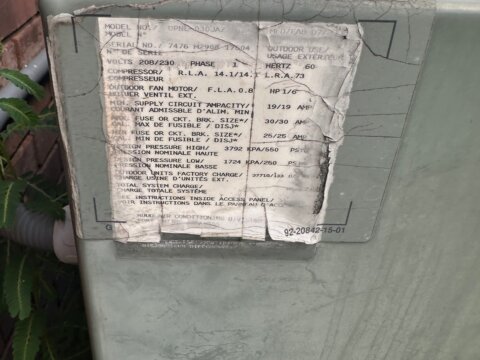 MODEL NO./ UPNE-030JAZ MFD/FAB
MODEL N°
SERIAL NO./ 7476 M2908 17604 OUTDOOR USE/
N° DE SÉRIE USAGE EXTÉRIEUR
VOLTS 208/230 PHASE 1 HERTZ 60
COMPRESSOR/ R.L.A. 14.1/14.1 L.R.A. 73
COMPRESSEUR
OUTDOOR FAN MOTOR/ F.L.A. 0.8 HP 1/6
MOTEUR VENTIL EXT.
MIN. SUPPLY CIRCUIT AMPACITY/ 19/19 AMP
COURANT ADMISSBLE D'ALIM. MIN
MAX. FUSE OR CKT. BRK. SIZE*/ 30/30 AM
CAL. MAX DE FUSIBLE / DISJ*
MIN FUSE OR CKT. BRK. SIZE*/ 25/25 AM
CAL. MIN DE FUSIBLE / DISJ*
DESIGN PRESSURE HIGH/ 3792 KPA/550 PS
PRESSION NOMINALE HAUTE
DESIGN PRESSURE LOW/ 1724 KPA/250 PS
PRESSION NOMINALE BASSE
OUTDOOR UNITS FACTORY CHARGE/
CHARGE USINE D'UNITÉS EXT.
TOTAL SYSTEM CHARGE/
CHARGE TOTALE SYSTÈME
SEE INSTRUCTIONS INSIDE ACCESS PANEL/
VOIR INSTRUCTIONS DANS LE PANNEAU D'ACC
AIR CONDITIONING
92-20842-15-01